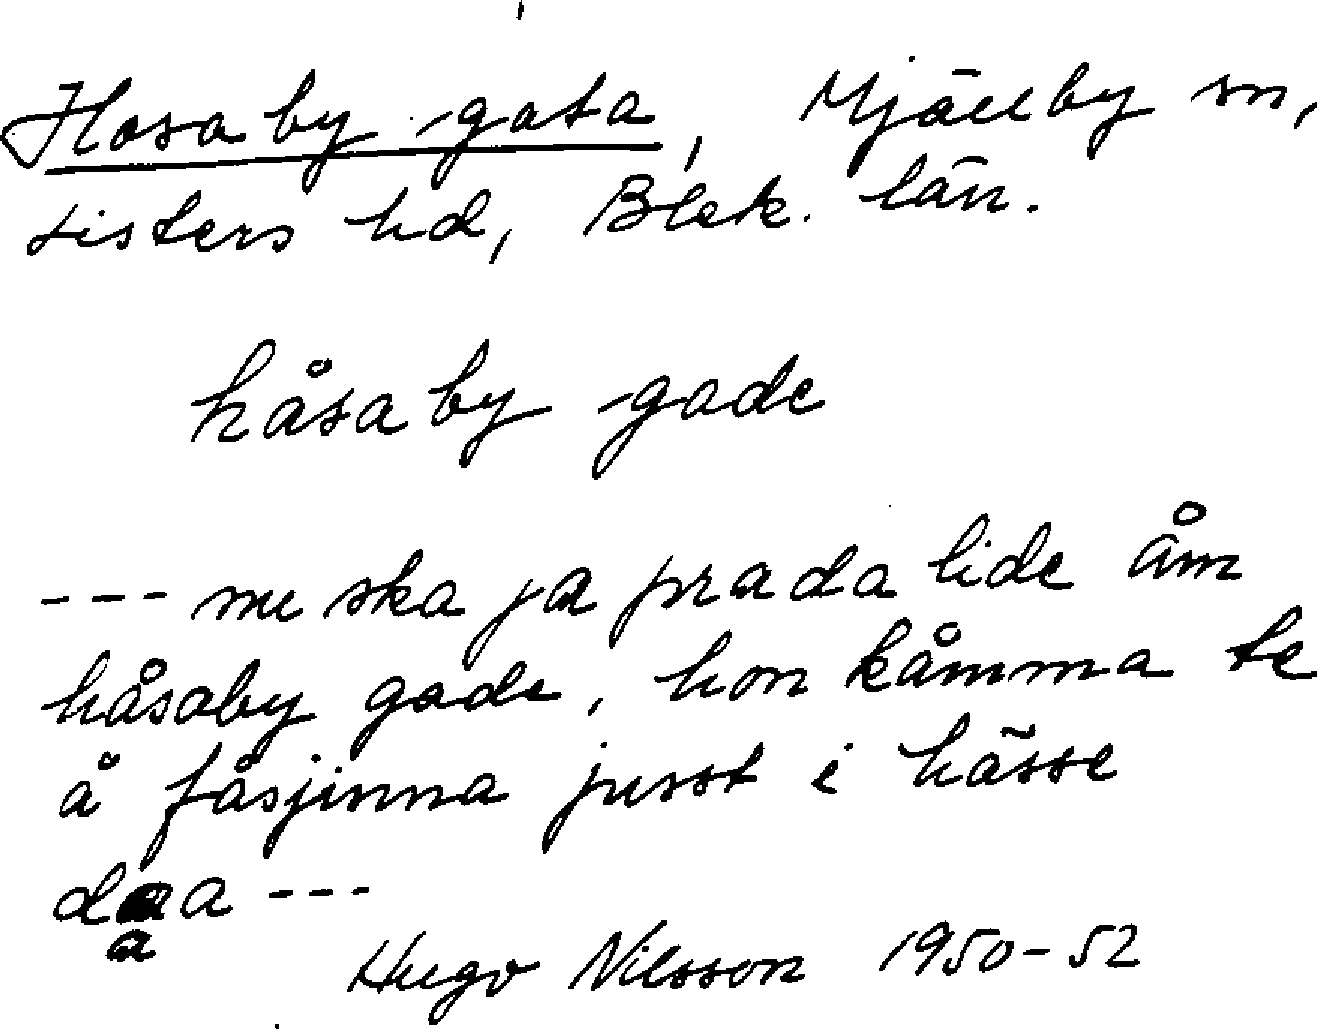 Hosaby gata, Mjällby sn,
Listers hd, Blek. län.
håsaby gade
--- nu ska ja prada lide åm
håsaby gade, hon kåmma te
å fåsjinna jusst i hässe
daa ---
a
Hugo Nilsson 1950-52